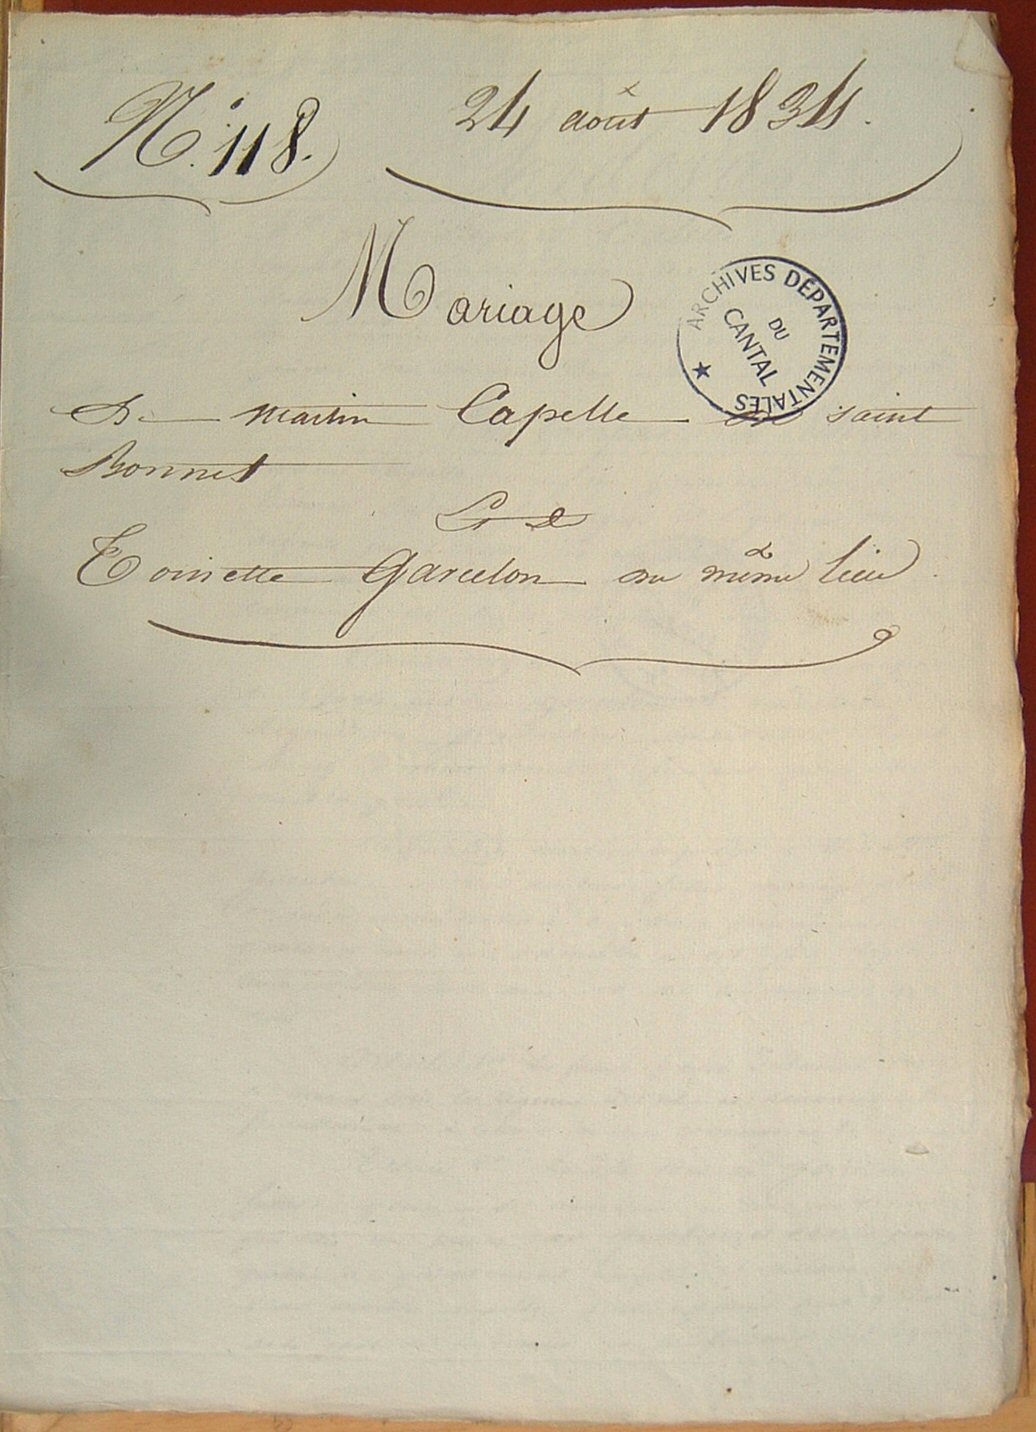 N.° 118. 24 août 1834.
Mariage
ARCHIVES DÉPARTEMENTALES
DU
CANTAL
De martin Capelle de saint
Bonnet
Et de
Toinette Garcelon du même lieu